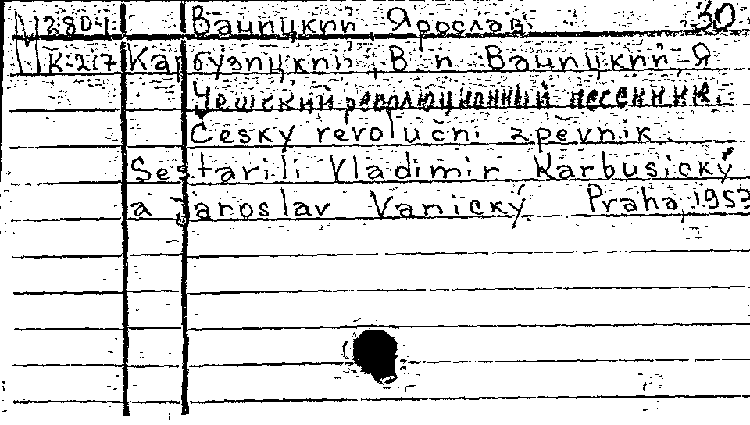 И3804 Ваницкий, Ярослав. 30
К-217 Карбузицкий, В. и Ваницкий, Я
Чешский революционный песенник.
Česky revoluční zpevnik.
Sestavili Vladimir Karbusický
a Jaroslav Vanický Praha, 1953